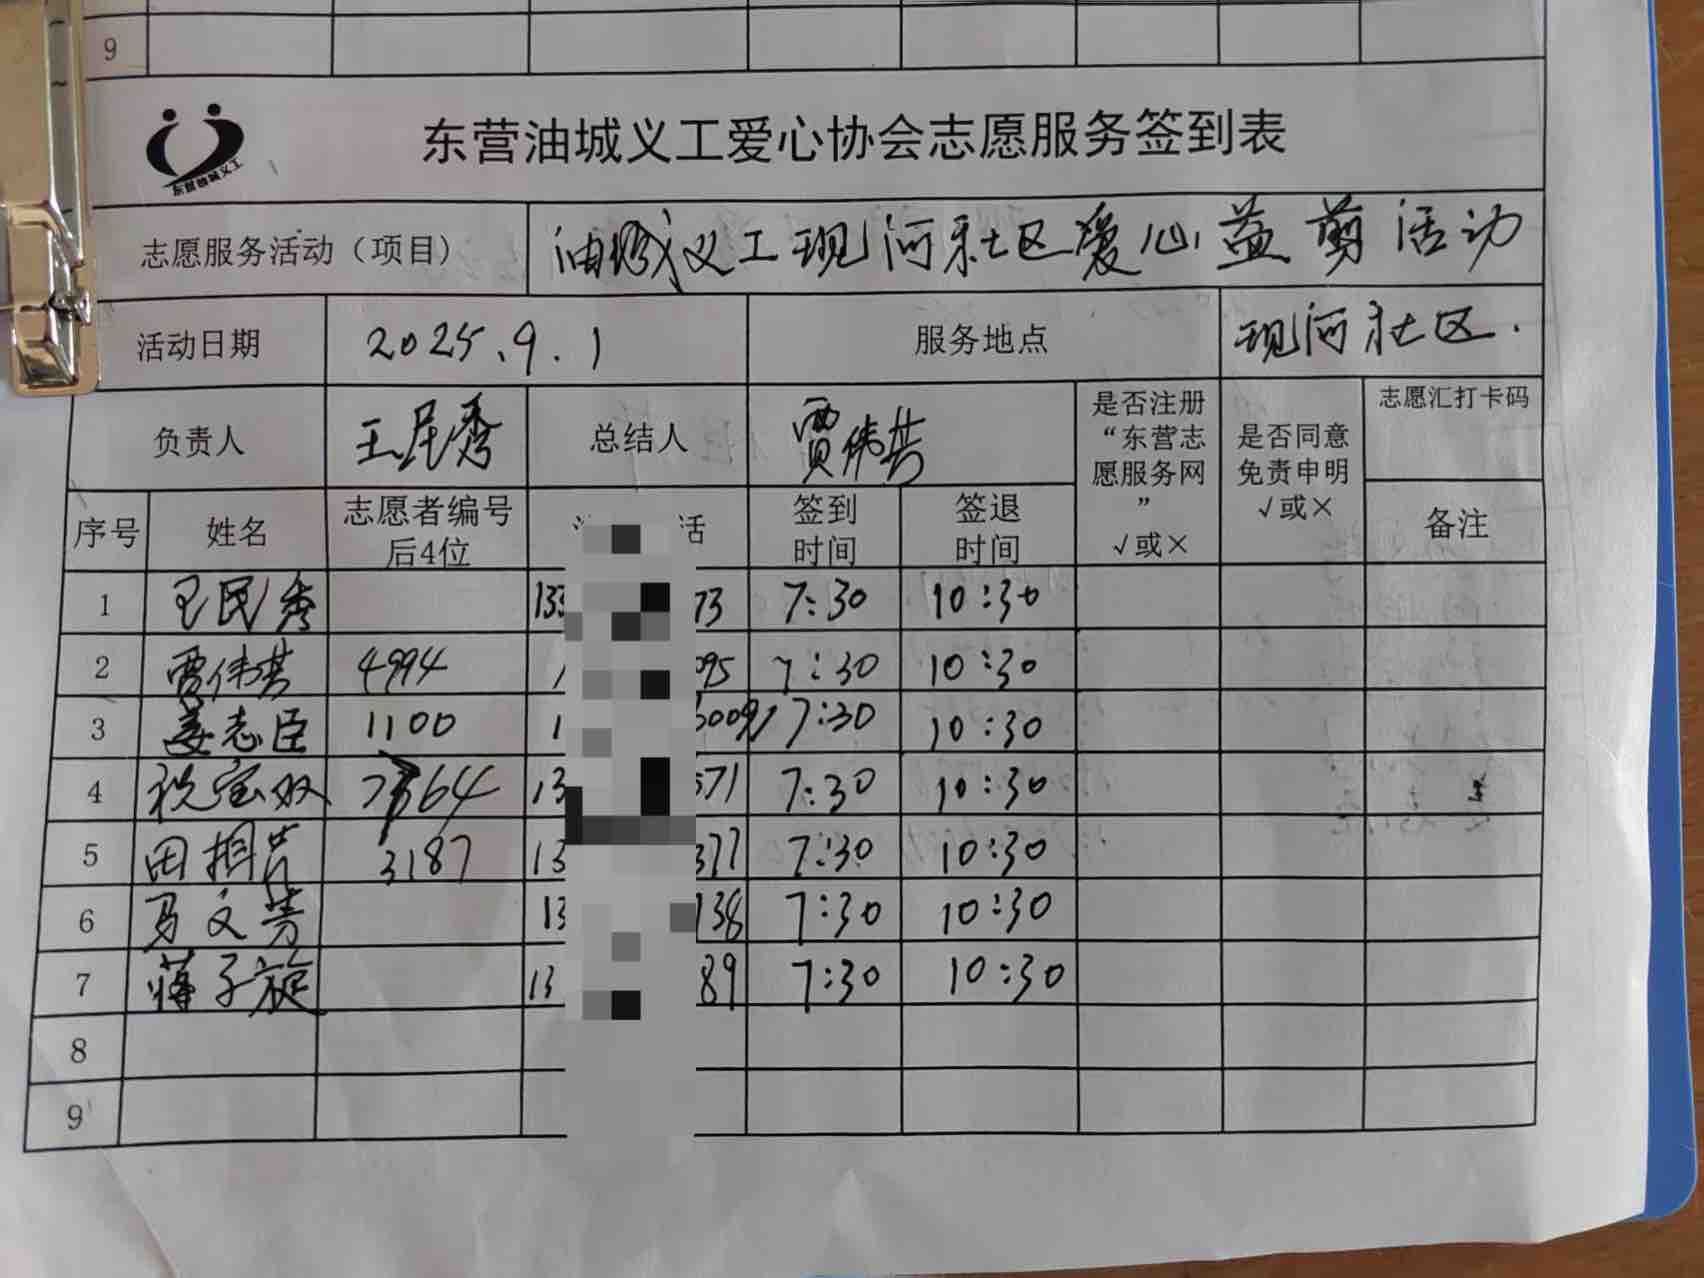 9
东营油城义工
东营油城义工爱心协会志愿服务签到表
志愿服务活动（项目） 油城义工现河社区爱心益剪活动
活动日期 2025.9.1 服务地点 现河社区.
负责人 王民秀 总结人 贾伟芸 是否注册“东营志愿服务网” √或× 是否同意免责申明 √或× 志愿汇打卡码
序号 姓名 志愿者编号后4位 话 签到时间 签退时间 备注
1 王民秀 133 73 7:30 10:30
2 贾伟芸 4994 1 095 7:30 10:30
3 姜志臣 1100 1 6009 7:30 10:30
4 祝宝双 7364 13 571 7:30 10:30
5 田相 3187 13 377 7:30 10:30
6 马文芳 13 138 7:30 10:30
7 蒋子旋 13 89 7:30 10:30
8
9